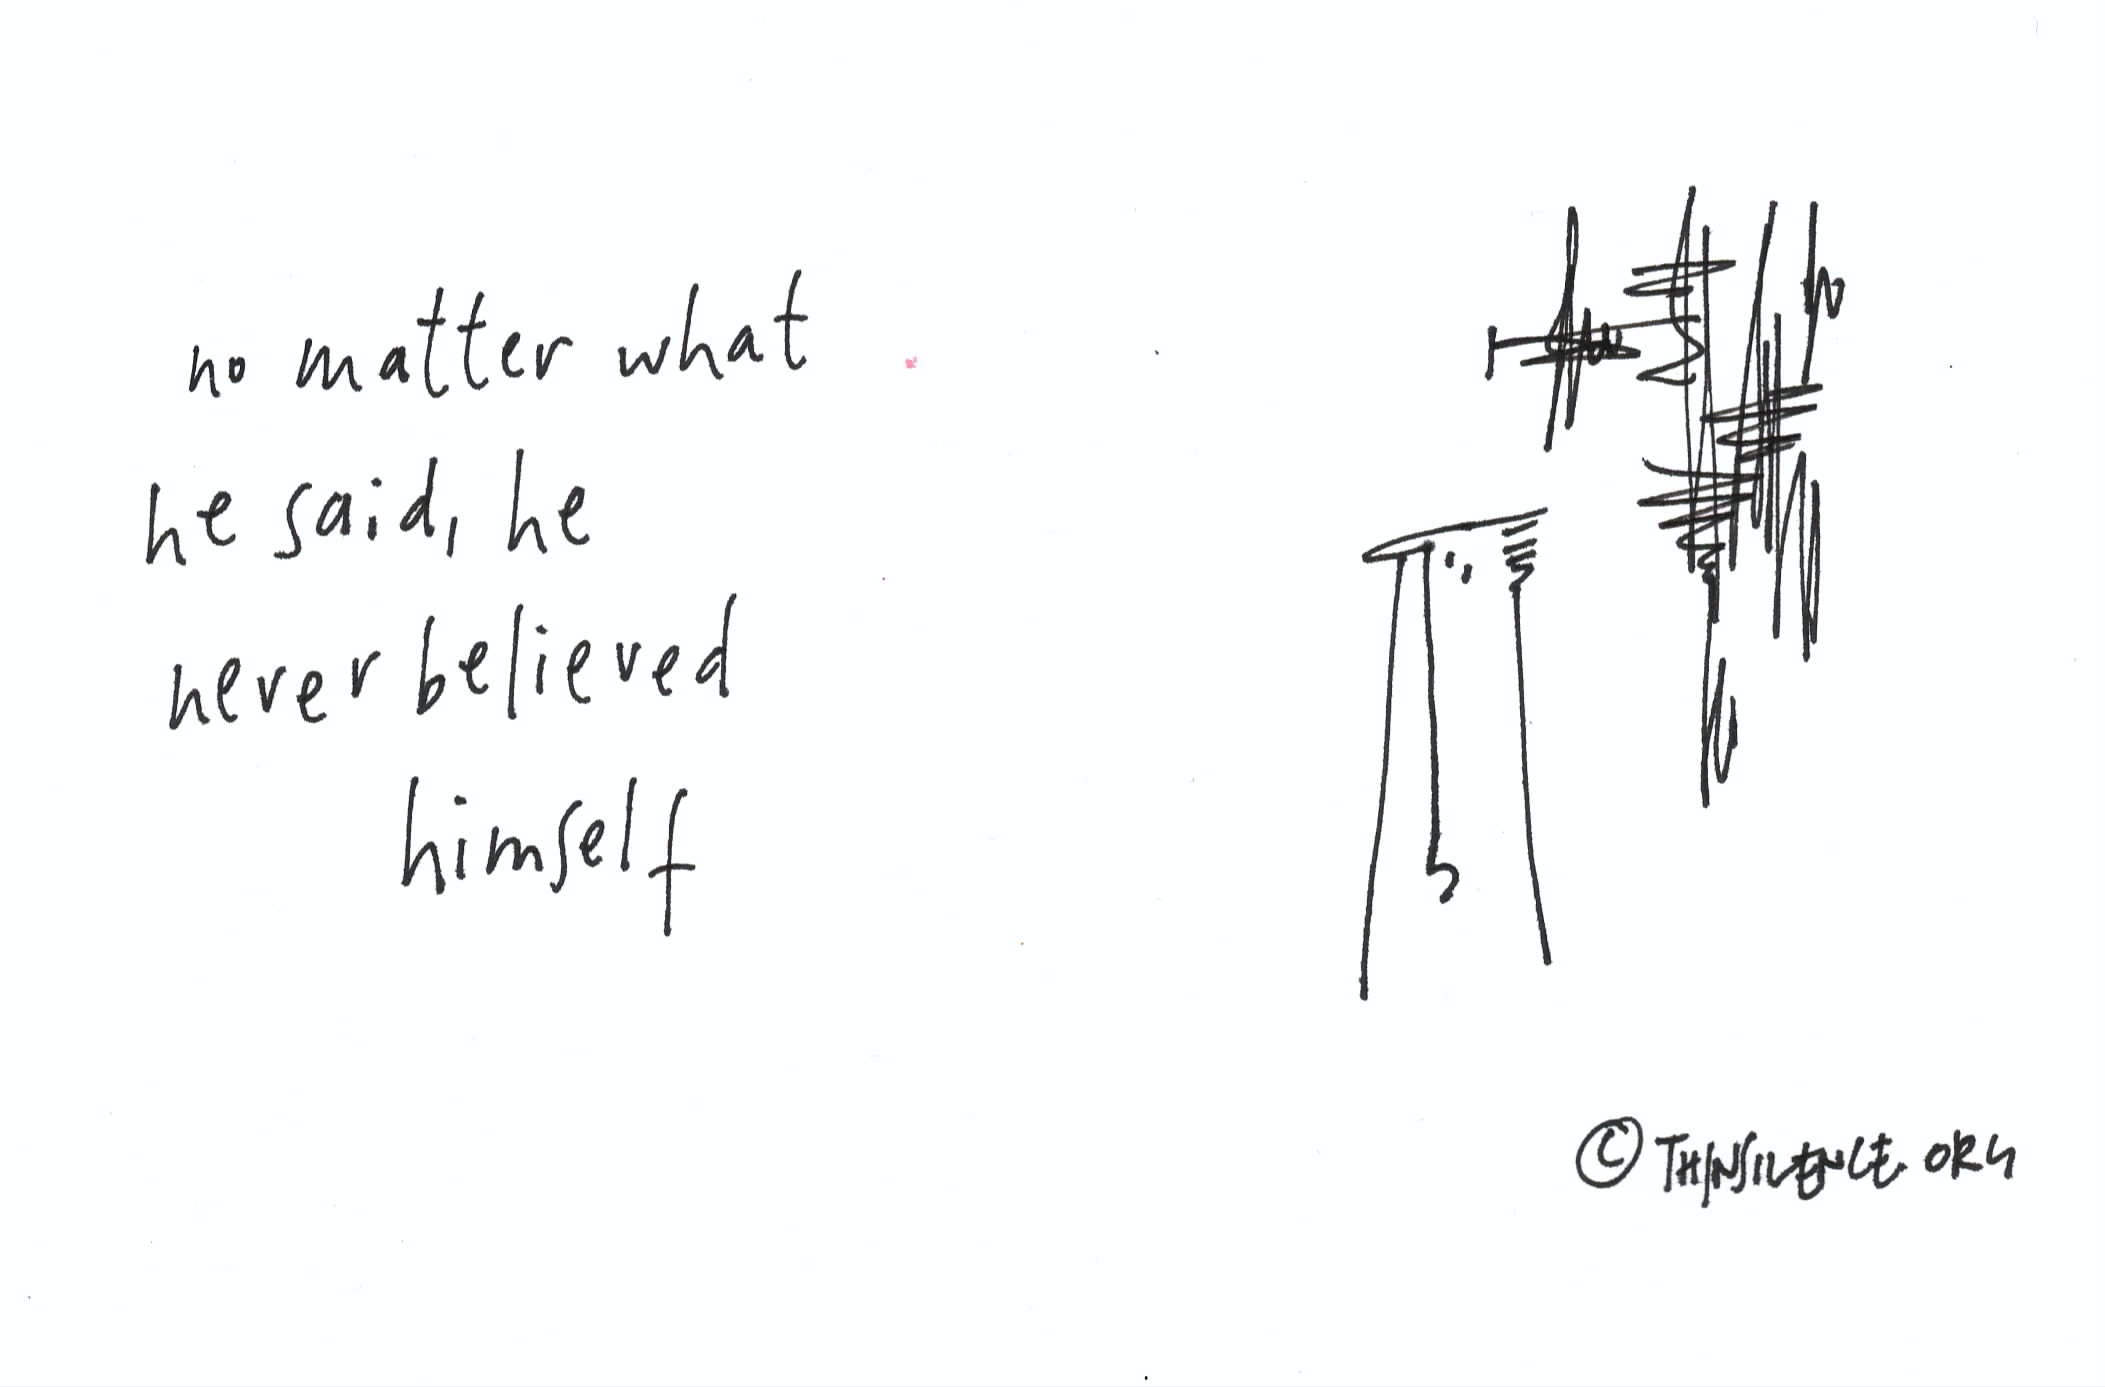 no matter what
he said, he
never believed
himself
© THINSILENCE.ORG